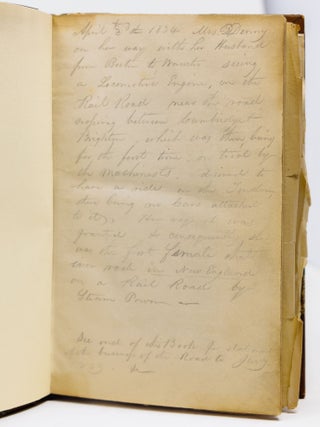 April 3d 1834 Mrs Denny
on her way with her Husband
from Boston to Worcester seeing
a Locomotive Engine, on the
Rail Road near the road
crossing between Cambridgeport
Brighton which was then being
for the first time on trial by
the Machinists desired to
have a ride on the Tender,
there being no Cars attached
to it, Her request was
granted & consequently she
was the first female that
ever rode in New England
on a Rail Road by
Steam Power
See end of the Book for
of the business of the Road to Jany